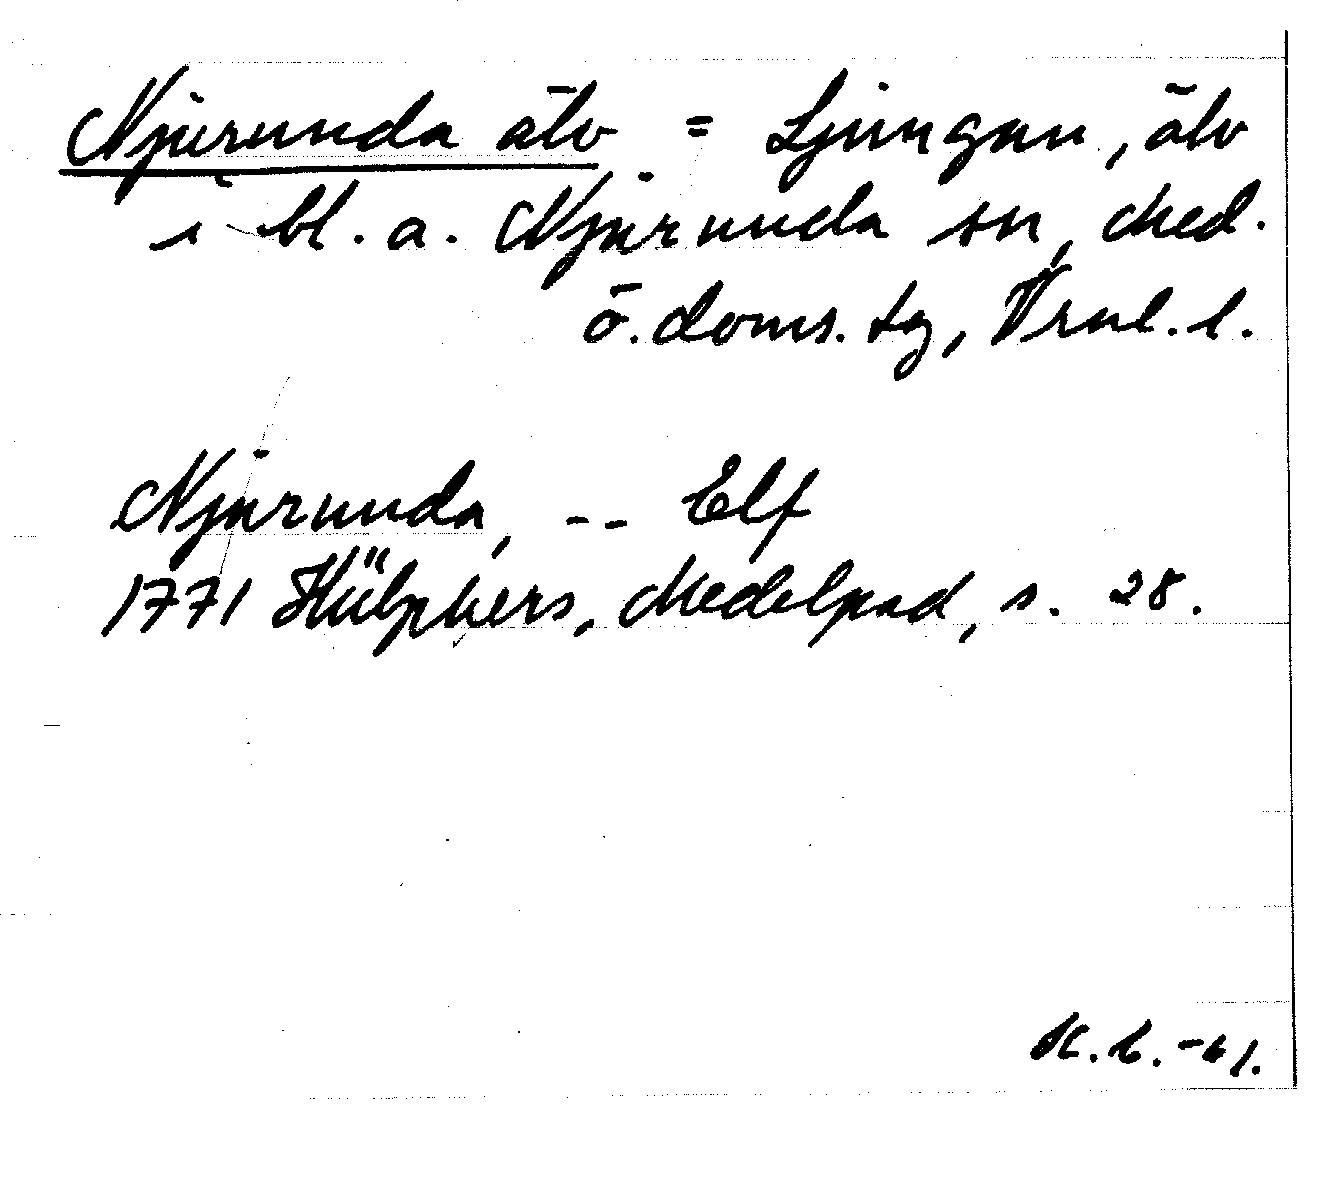 Njurunda älv = Ljungan, älv
i bl. a. Njurunda sn, Med.
ö. doms. tg, Vrnl. l.
Njurunda, -- Elf
1771 Hülphers, Medelpad, s. 28.
K. L. -61.